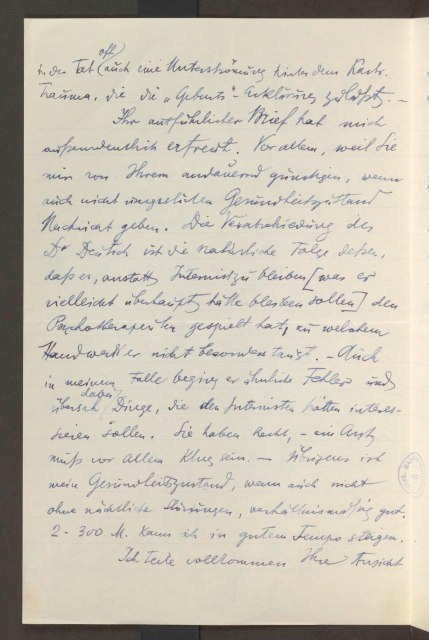 in der Tat oft auch eine Unterströmung hinter dem Kastr.
Trauma, die die „Geburts"-Erklärung zuläßt. –
Ihr ausführlicher Brief hat mich
außerordentlich erfreut. Vor allem, weil Sie
mir von Ihrem andauernd günstigen, wenn
auch nicht ungestörten Gesundheitszustand
Nachricht geben. Die Verabschiedung des
Dr Deutsch ist die natürliche Folge dessen,
daß er, anstatt Internist zu bleiben [was er
vielleicht überhaupt hätte bleiben sollen] den
Psychotherapeuten gespielt hat, zu welchem
Handwerk er nicht besonders taugt. – Auch
in meinem Falle beging er ähnliche Fehler und
übersah dabei Dinge, die den Internisten hätten interes-
sieren sollen. Sie haben Recht, – ein Arzt
muß vor allem klug sein. – Übrigens ist
mein Gesundheitszustand, wenn auch nicht
ohne nächtliche Störungen, verhältnismäßig gut.
2-300 M. kann ich in gutem Tempo steigen.
Ich teile vollkommen Ihre Ansicht